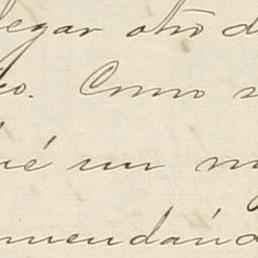 legar otro d
co. Como s
ué un m
mendand